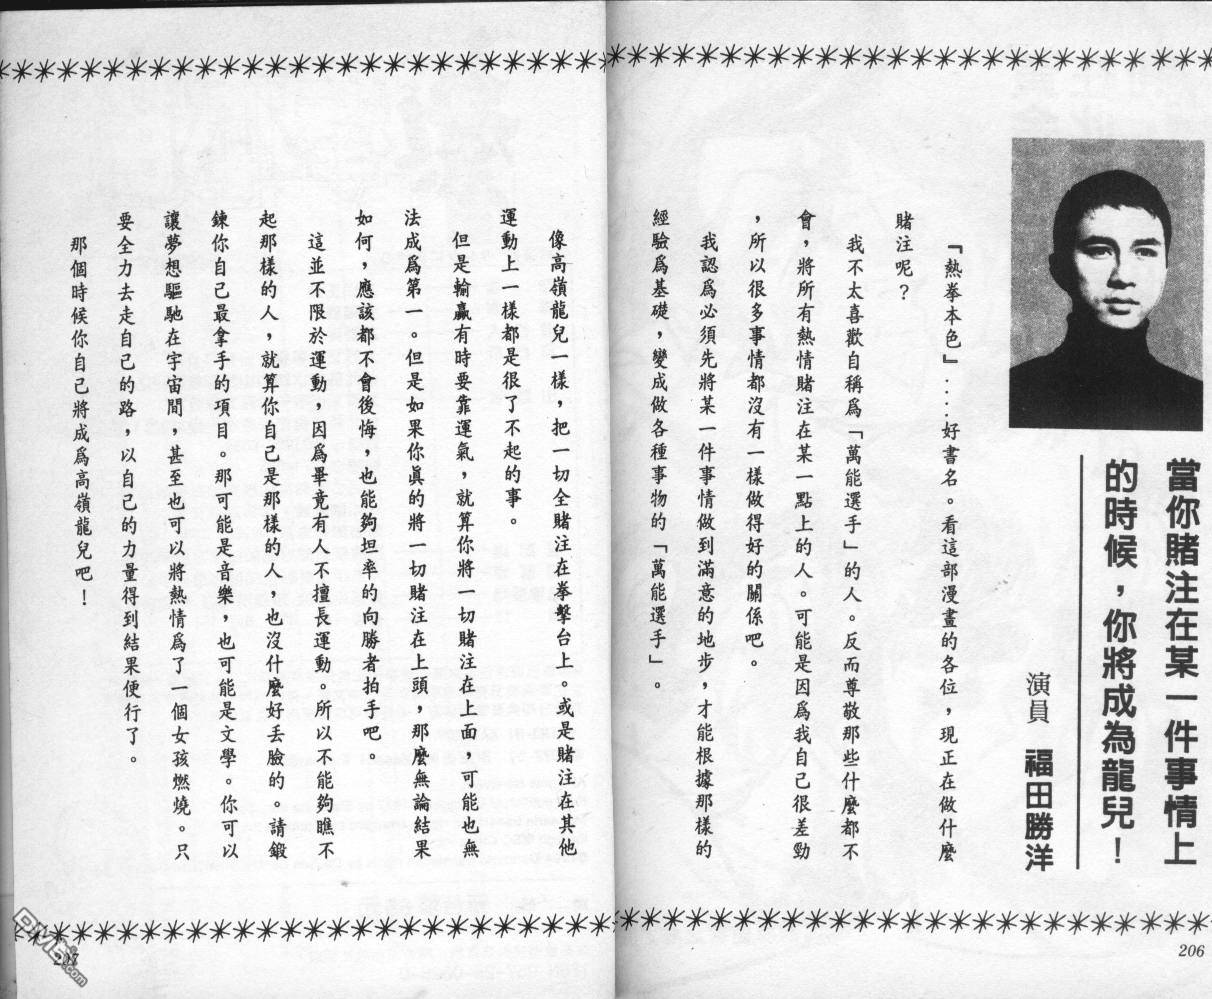 當你賭注在某一件事情上
的時候，你將成為龍兒！
演員　福田勝洋
「熱拳本色」‥‥好書名。看這部漫畫的各位，現正在做什麼
賭注呢？
我不太喜歡自稱爲「萬能選手」的人。反而尊敬那些什麼都不
會，將所有熱情賭注在某一點上的人。可能是因爲我自己很差勁
，所以很多事情都沒有一樣做得好的關係吧。
我認爲必須先將某一件事情做到滿意的地步，才能根據那樣的
經驗爲基礎，變成做各種事物的「萬能選手」。
206
像高嶺龍兒一樣，把一切全賭注在拳擊台上。或是賭注在其他
運動上一樣都是很了不起的事。
但是輸贏有時要靠運氣，就算你將一切賭注在上面，可能也無
法成爲第一。但是如果你眞的將一切賭注在上頭，那麼無論結果
如何，應該都不會後悔，也能夠坦率的向勝者拍手吧。
這並不限於運動，因爲畢竟有人不擅長運動。所以不能夠瞧不
起那樣的人，就算你自己是那樣的人，也沒什麼好丢臉的。請鍛
鍊你自己最拿手的項目。那可能是音樂，也可能是文學。你可以
讓夢想驅馳在宇宙間，甚至也可以將熱情爲了一個女孩燃燒。只
要全力去走自己的路，以自己的力量得到結果便行了。
那個時候你自己將成爲高嶺龍兒吧！